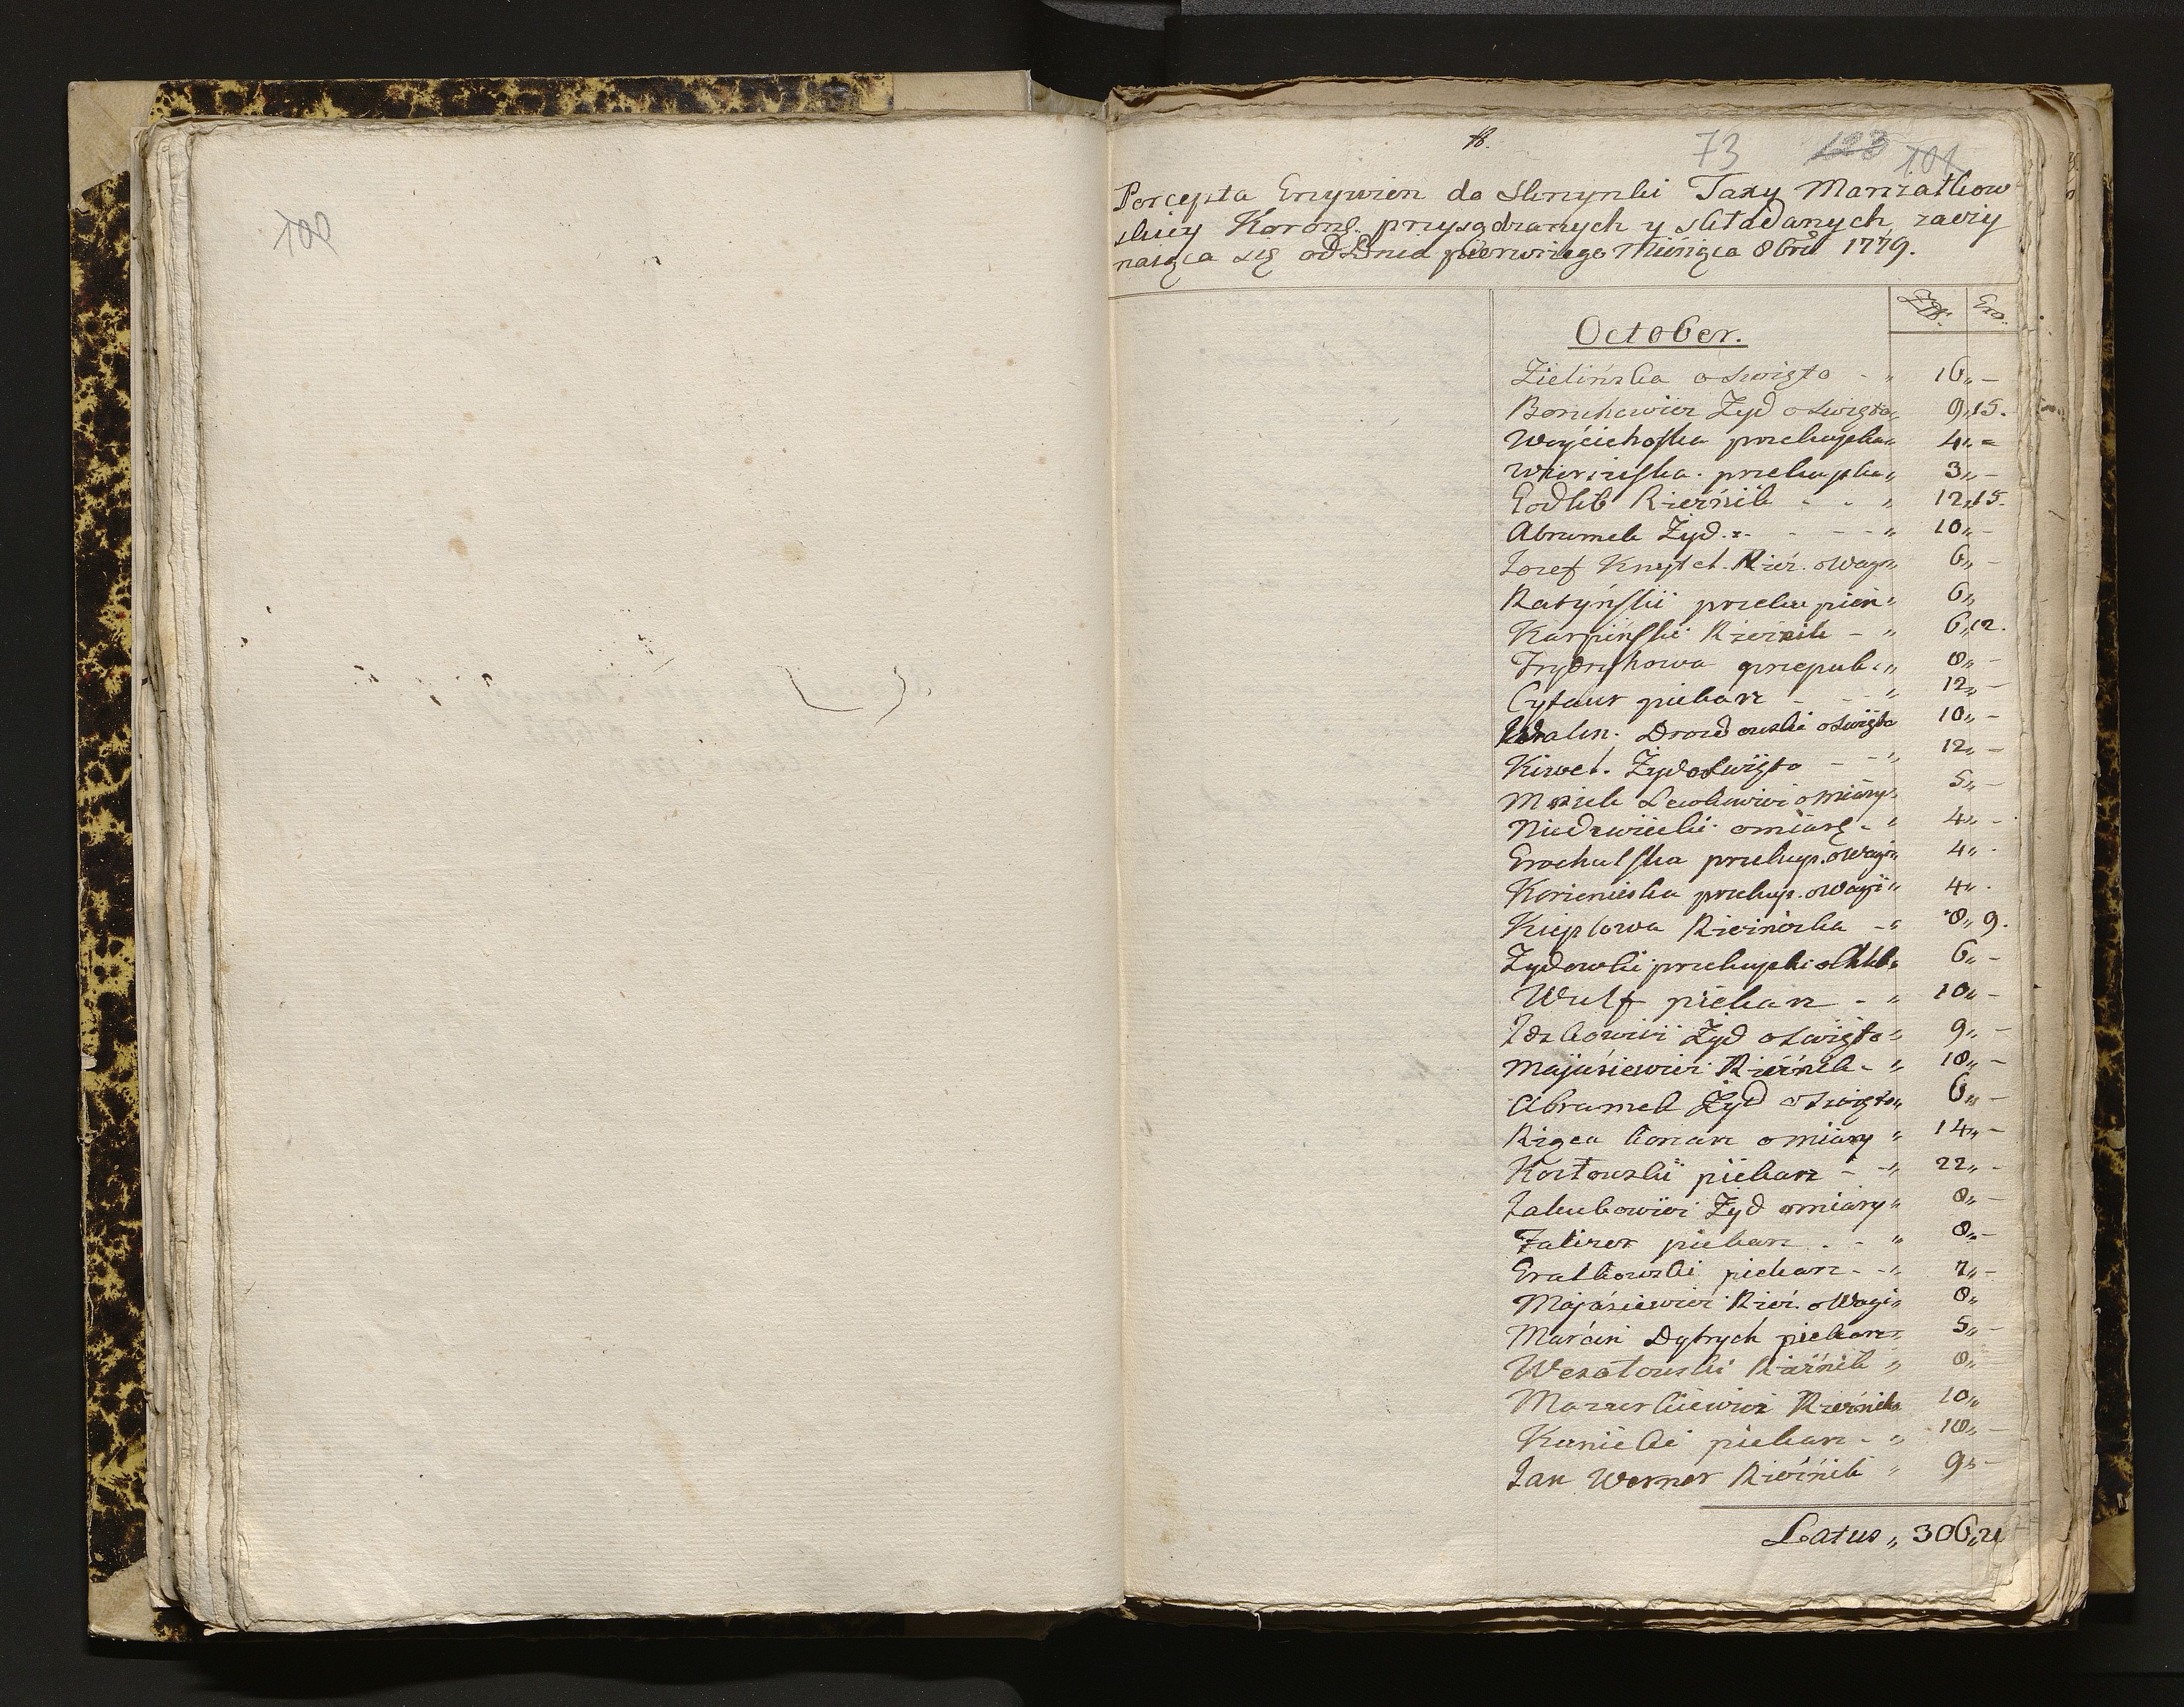 100
18.
73 123 101
Percepta Grzywien do Skrzynki Taxy Marszałkow
skiey Koronẽ. przysądzanych y składanych, zaczy
naiąca się od Dnia pierwszego Miesiąca 8bra 1779.
Złł. Gro.
October.
Zielińska o Swięto - „ 16„ -
Boruchowicz Żyd o Swięto„ 9„15.
Woyciechoſka przekupka„ 4„ =
Wierzciſka. przekupka„ 3„ -
Godlib Rzeźnik - - „ 12„15.
Abramek Żyd. - - - „ 10„ -
Jozef Krysztel. Rzeź. o Wagę„ 6„ -
Ratyńſkii przekupień„ 6„
Karpińſki Rzeźnik - „ 6„12.
Frydrychowa przepuk.„ 8„ -
Cytaur piekarz - - „ 12„ -
Walen. Drozdowski o Swięto 10„ -
Kiwel. Żyd o Swięto - - „ 12„ -
Moszek Lewkowicz o Miary„ 5„ -
Niedzwiecki o miarę - „ 4„ -
Grochulſka przekup. o Wagę„ 4„ .
Korzenieska przekup. o Wagę„ 4„ .
Kieplowa Rzeźniczka - „ 8„ 9.
Zydowski przekupki o Chleb„ 6„ -
Wulf piekarz - „ 10„ -
Ickowicz Żyd o Swięto„ 9„ -
Majasiewicz Rzeźnik - „ 18„ -
Abramek Żyd o Swięto„ 6„ -
Rząca konarz o miary „ 14„ -
Kozłowski piekarz - - „ 22„ -
Jakubowicz Żyd o miary„ 8„ -
Falizer piekarz . - „ 8„ -
Gratkowski piekarz - - „ 7„ -
Majasiewicz Rzeź. o Wagę„ 8„
Marcin Dytrych piekarz„ 5„ -
Wesołowski Rzeźnik „ 8„
Mazurkiewicz Rzeźnik„ 10„
Kunicki piekarz - „ 18„ -
Jan Werner Rzeźnik „ 9„ -
Latus „ 306„21